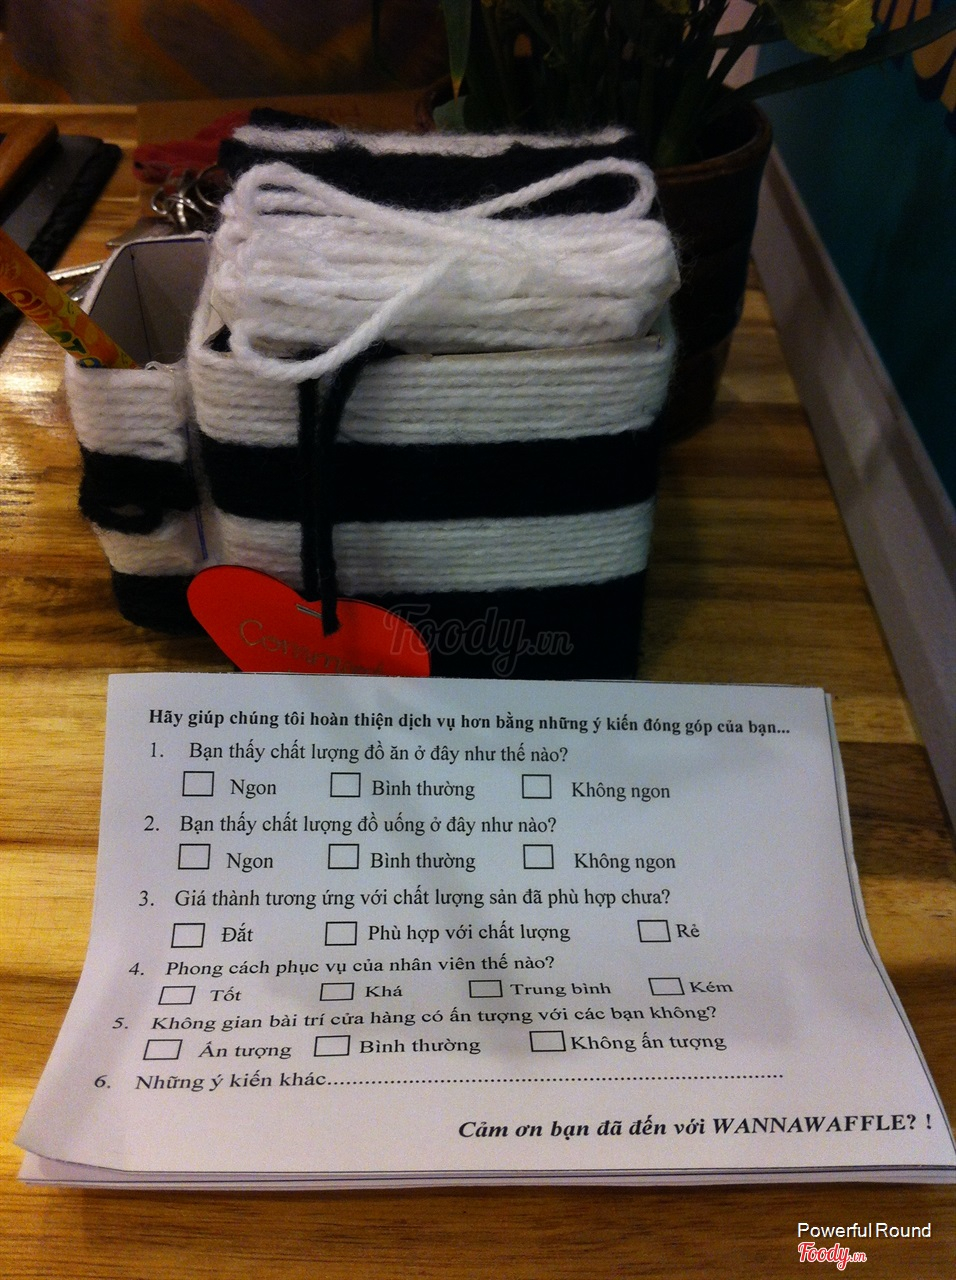 Foody.vn
Hãy giúp chúng tôi hoàn thiện dịch vụ hơn bằng những ý kiến đóng góp của bạn...
1. Bạn thấy chất lượng đồ ăn ở đây như thế nào?
Ngon Bình thường Không ngon
2. Bạn thấy chất lượng đồ uống ở đây như nào?
Ngon Bình thường Không ngon
3. Giá thành tương ứng với chất lượng sản đã phù hợp chưa?
Đắt Phù hợp với chất lượng Rẻ
4. Phong cách phục vụ của nhân viên thế nào?
Tốt Khá Trung bình Kém
5. Không gian bài trí cửa hàng có ấn tượng với các bạn không?
Ấn tượng Bình thường Không ấn tượng
6. Những ý kiến khác................................................................................
Cảm ơn bạn đã đến với WANNAWAFFLE? !
Powerful Round
Foody.vn